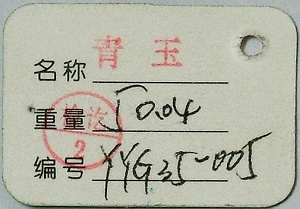 名称 青玉
重量 50.04
编号 YYG35-005
2